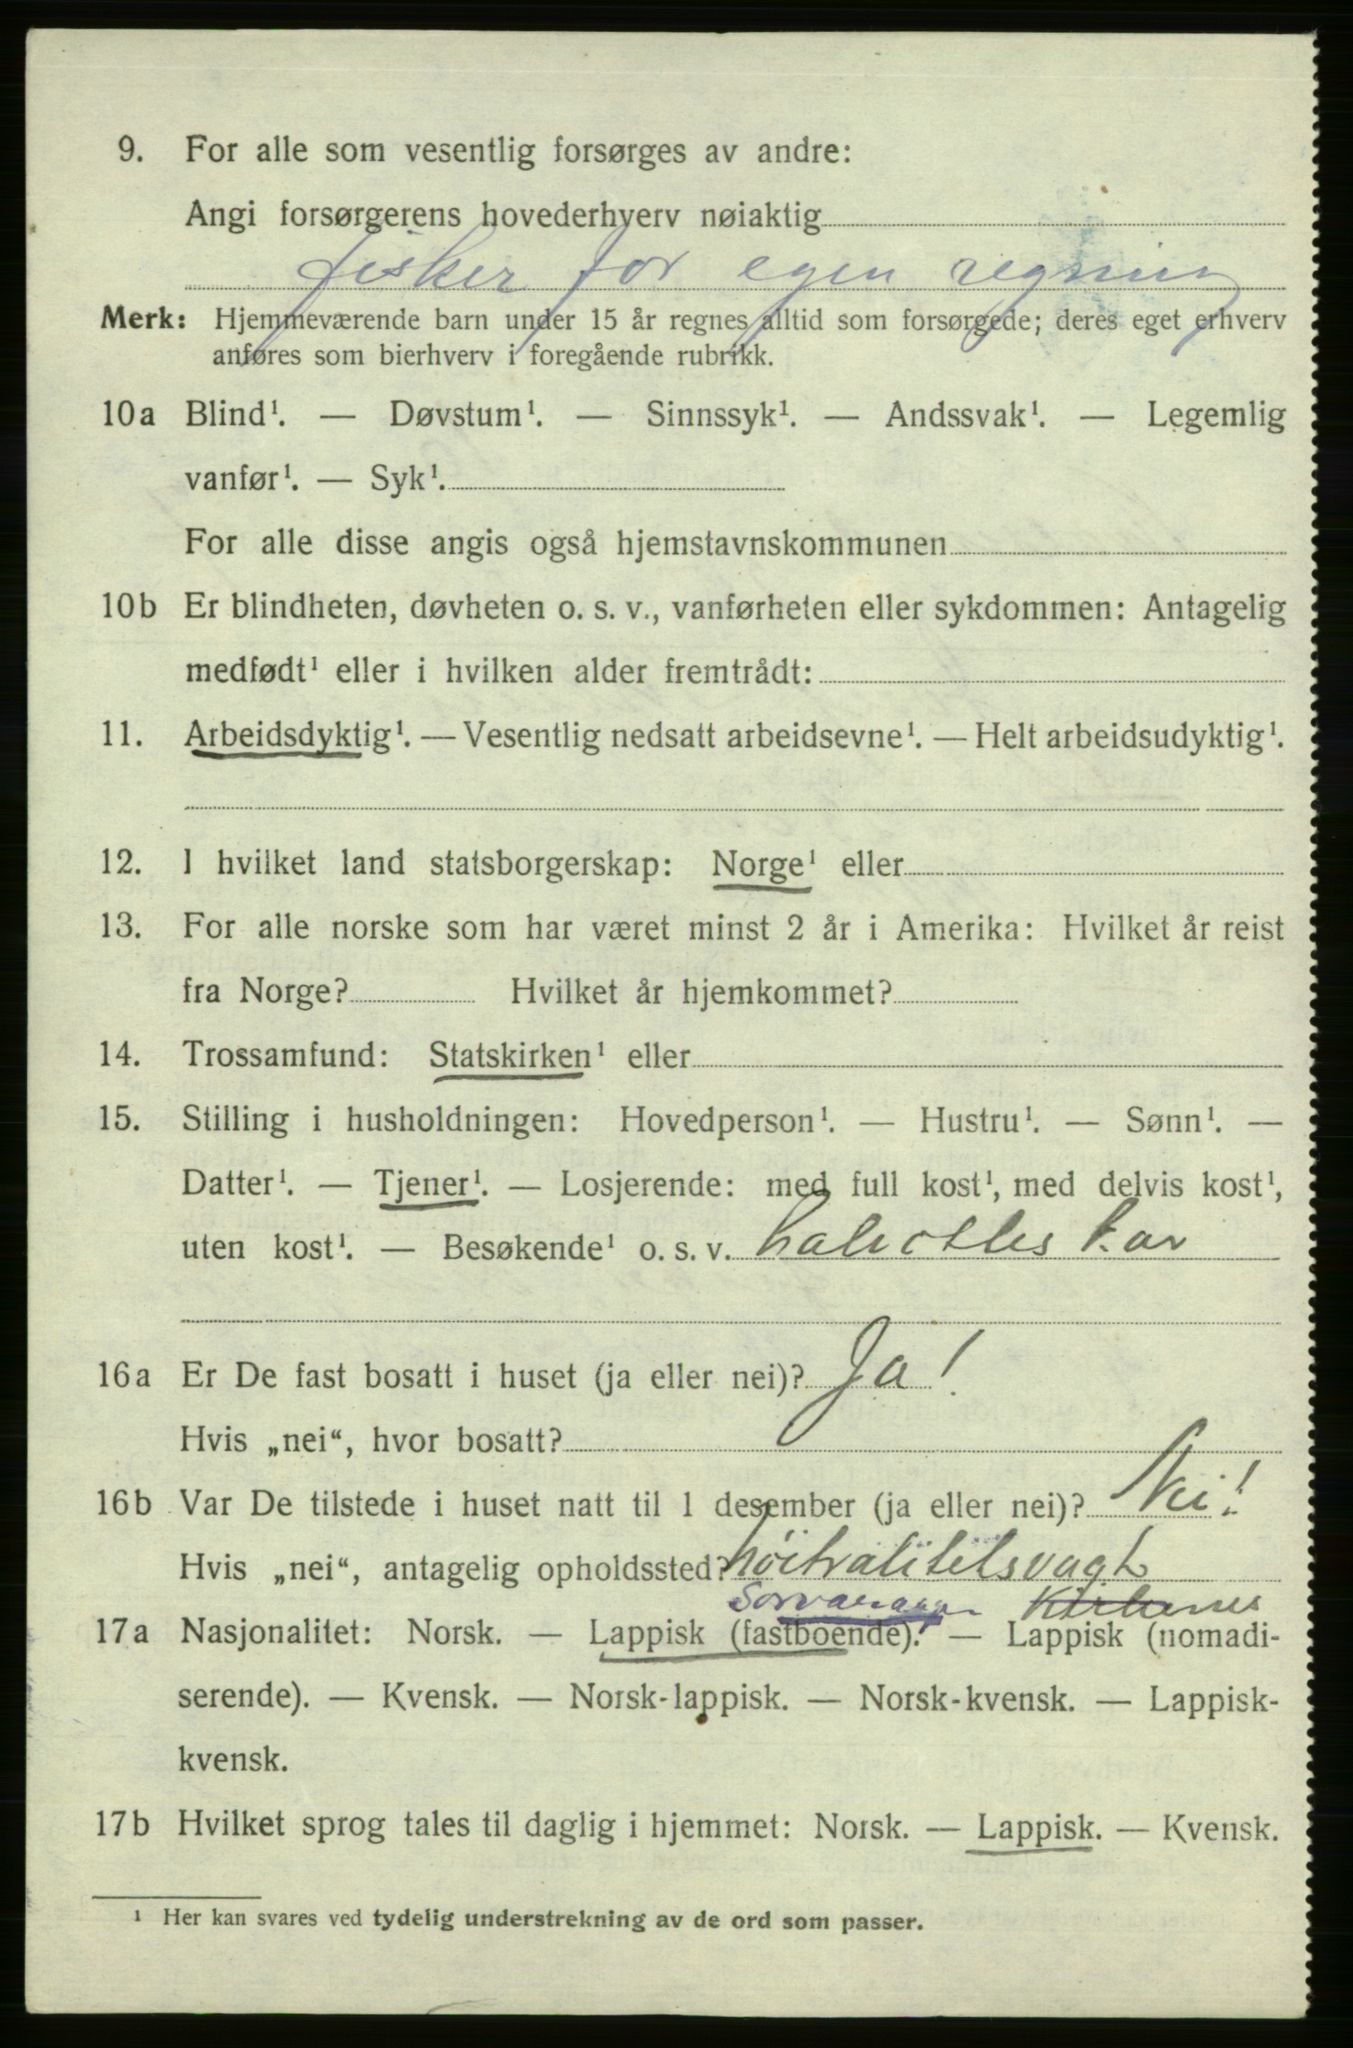 9. For alle som vesentlig forsørges av andre:
Angi forsørgerens hovederhverv nøiaktig
fisker for egen regning
Merk: Hjemmeværende barn under 15 år regnes alltid som forsørgede; deres eget erhverv
anføres som bierhverv i foregående rubrikk.
10a Blind¹. — Døvstum¹. — Sinnssyk¹. — Andssvak¹. — Legemlig
vanfør¹. — Syk¹.
For alle disse angis også hjemstavnskommunen
10b Er blindheten, døvheten o. s. v., vanførheten eller sykdommen: Antagelig
medfødt¹ eller i hvilken alder fremtrådt:
11. Arbeidsdyktig¹. — Vesentlig nedsatt arbeidsevne¹. — Helt arbeidsudyktig¹.
12. I hvilket land statsborgerskap: Norge¹ eller
13. For alle norske som har været minst 2 år i Amerika: Hvilket år reist
fra Norge? Hvilket år hjemkommet?
14. Trossamfund: Statskirken¹ eller
15. Stilling i husholdningen: Hovedperson¹. — Hustru¹. — Sønn¹. —
Datter¹. — Tjener¹. — Losjerende: med full kost¹, med delvis kost¹,
uten kost¹. — Besøkende¹ o. s. v. halvotles kar
16a Er De fast bosatt i huset (ja eller nei)? Ja!
Hvis „nei“, hvor bosatt?
16b Var De tilstede i huset natt til 1 desember (ja eller nei)? Nei!
Hvis „nei“, antagelig opholdssted? nöitralitetsvagt
Sørvaranger Kirkenes
17a Nasjonalitet: Norsk. — Lappisk (fastboende). — Lappisk (nomadi-
serende). — Kvensk. — Norsk-lappisk. — Norsk-kvensk. — Lappisk-
kvensk.
17b Hvilket sprog tales til daglig i hjemmet: Norsk. — Lappisk. — Kvensk.
¹ Her kan svares ved tydelig understrekning av de ord som passer.